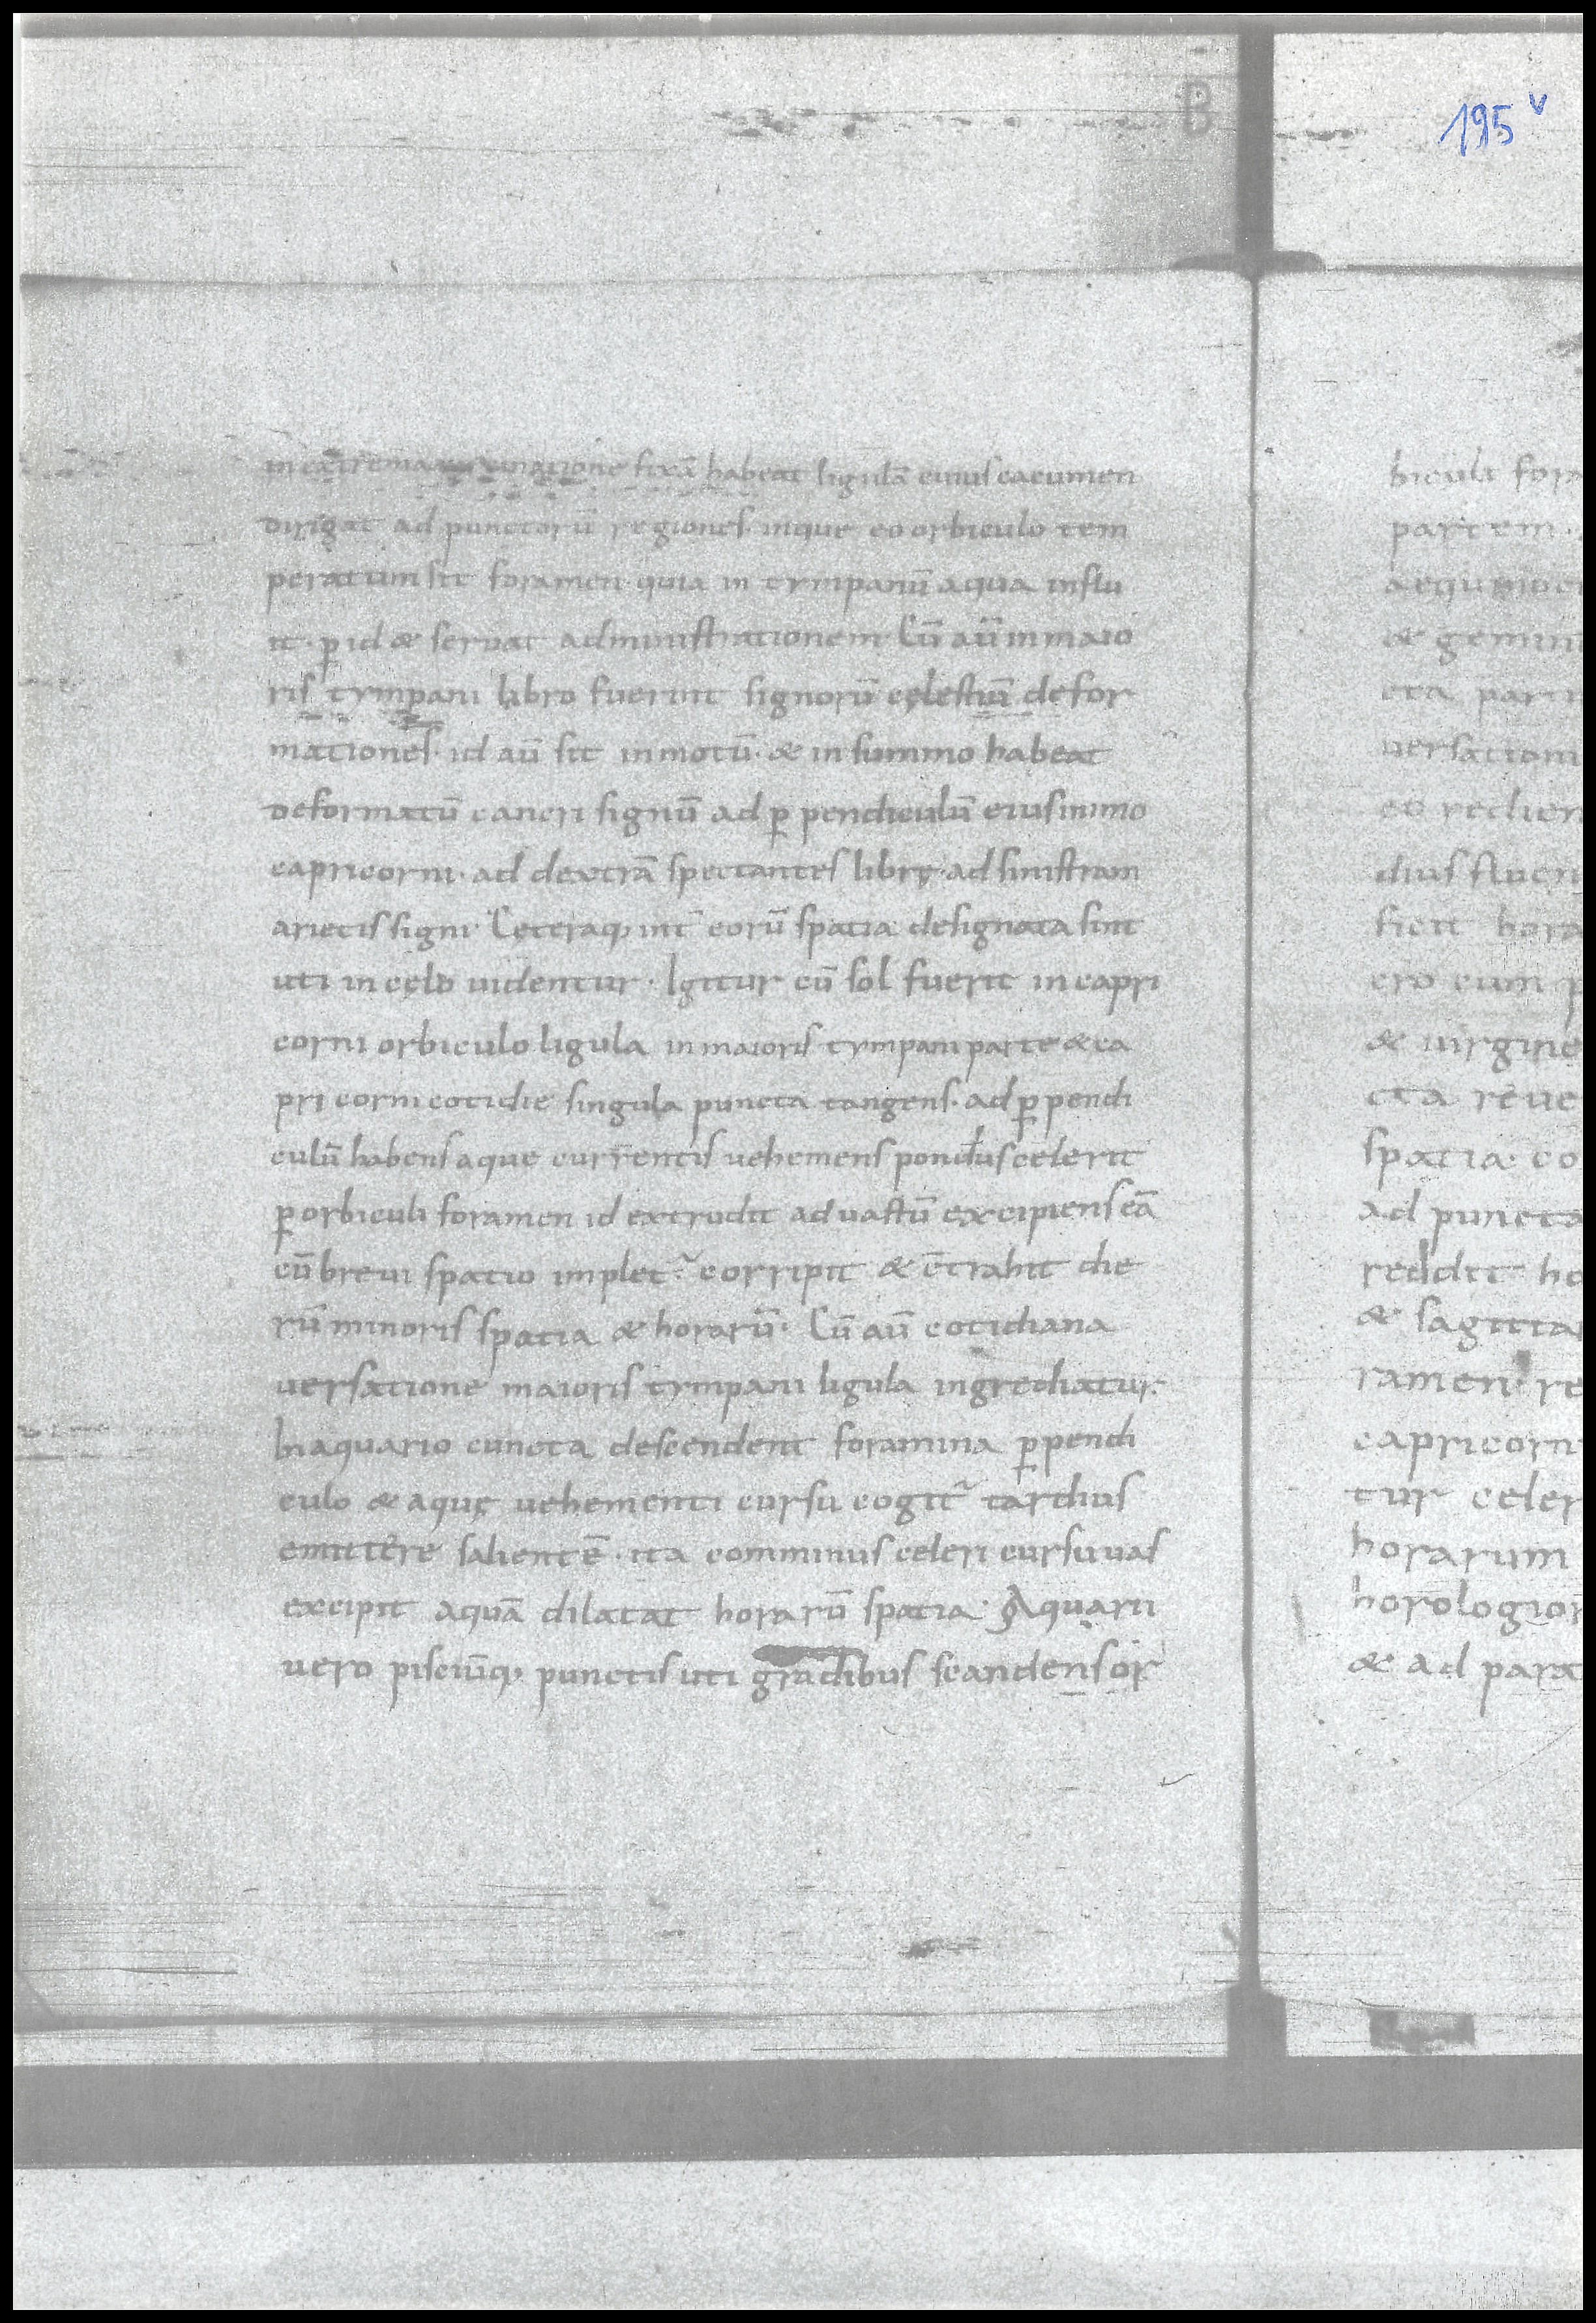 B
195 v
in extrema fixā habeat ligulā cuius cacumen
dirigat ad punctorū regiones. inque eo orbiculo tem
peratum sit foramen. quia in tympanū aqua influ
it. p̱ id & seruat administrationem Cū aū in maio
ris tympani libro fuerint signorū cęlestiū defor
mationes. id aū sit inmotū. & in summo habeat
deformatū cancri signū ad p̱ pendiculū eius inimo
capricorni. ad dextrā spectantes librę. ad sinistram
arietis signi. Ceteraq; int̄ eorū spatia designata sint
uti in cęlo uidentur. Igitur cū sol fuerit in capri
corni orbiculo ligula in maioris tympani parte & ca
pri corni cotidie singula puncta tangens. ad p̱pendi
culū habens aque currentis uehemens pondus celerit
p̱ orbiculi foramen id extrudit ad uastū excipiens eā
cū breui spatio implet᷑. corripit & c̄trahit die
rū minoris spatia & horarū. Cū aū cotidiana
uersatione maioris tympani ligula ingrediatur.
In aquario cuncta descendent foramina p̱pendi
culo & aquę uehementi cursu cogit᷑ tardius
emittere salientē. ita comminus celeri cursu uas
excipit aquā dilatat horarū spatia. Aquarii
uero pisciūq; punctis uti gradibus scandens or
biculi fora
partem.
aequinoc
& gemin
cta par
uersation
eo redien
dius fluen
fiett hora
ero cum p
& uirgine
cta reue
spatia co
ad puncta
reddit ho
& sagitta
ramen re
capricorn
tur celer
horarum
horologior
& ad para